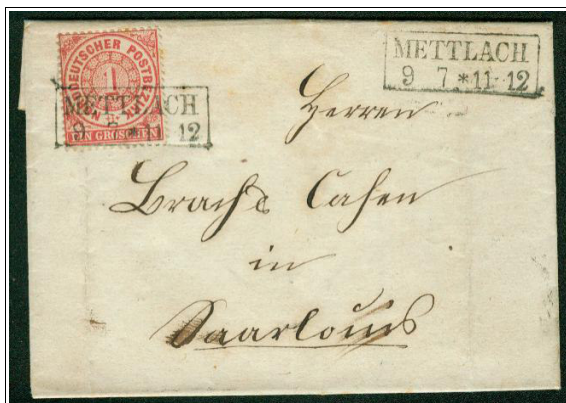 NORDDEUTSCHER POSTBEZIRK
1
EIN GROSCHEN
METTLACH
9 7 *11-12
METTLACH
9 7 *11-12
Herren
Brach & Cahen
in
Saarlouis